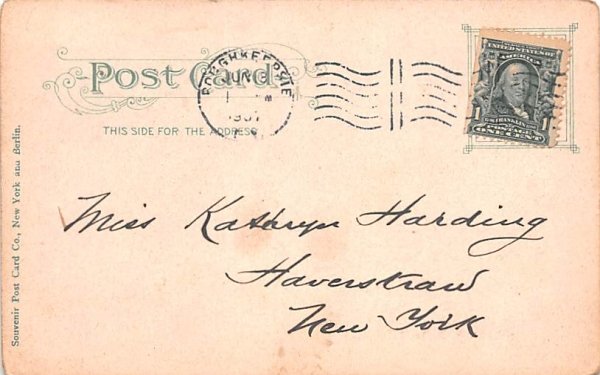 Post Card
THIS SIDE FOR THE ADDRESS
POUGHKEEPSIE
JUN
1907
N.Y.
UNITED STATES OF
AMERICA
FRANKLIN
POSTAGE
1 ONE CENT 1
Miss Kathryn Harding
Haverstraw
New York
Souvenir Post Card Co., New York and Berlin.